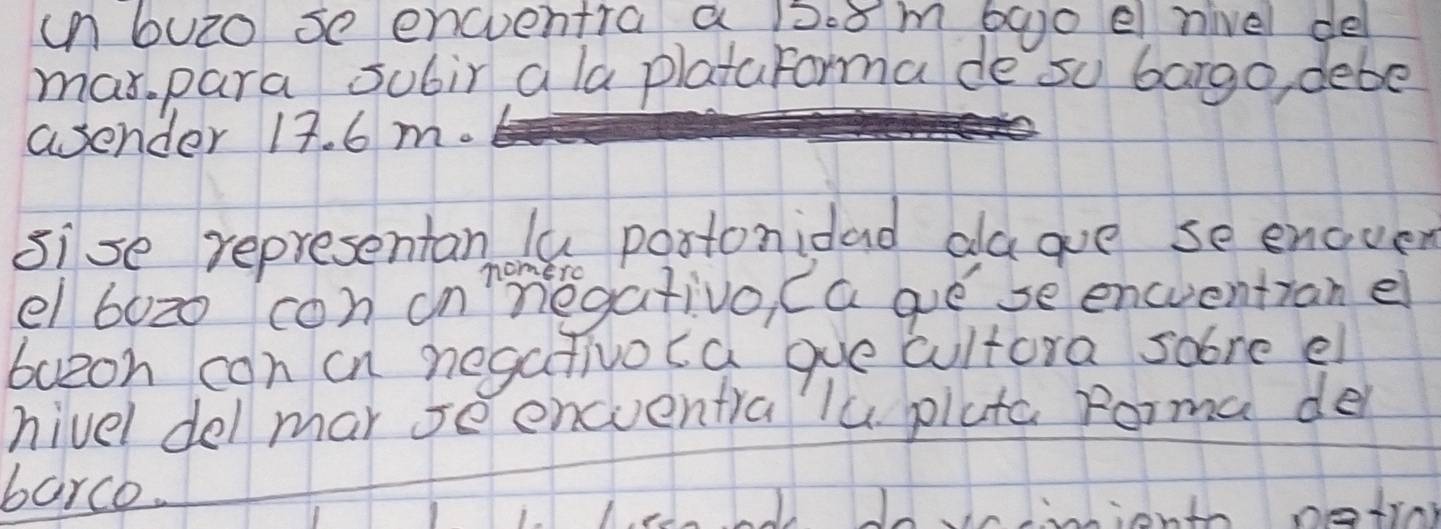 un buzo se encuentra a 15.8 m bajo el nivel del
mar. para subir a la plataForma de su bargo, debe
asender 17.6 m.
si se representan la portonidad ala que se encuen
nomero
el bozo con un negativo, ¿a qué se encuentran el
buzon con un negativo ¿a que cultora sobre el
nivel del mar se encuentra la plata Forma del
barco.